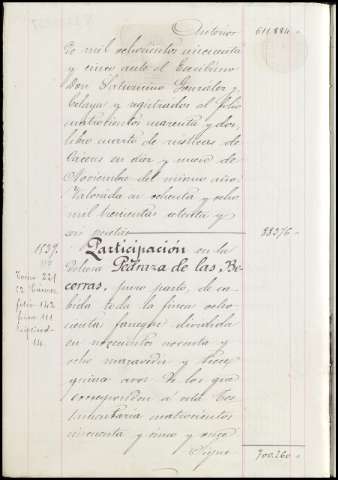 Anterior 611.884
de mil ochocientos cincuenta
y cinco ante el Escribano
Don Saturnino Gonzalez y
Celaya y registrados al folio
cuatrocientos cuarenta y dos,
libro cuarto de rústicas de
Cáceres en diez y nueve de
Noviembre del mismo año.
Valorada en ochenta y ocho
mil trescientas setenta y
seis pesetas 88376
1539. Participación en la
Dehesa Pedraza de las Be-
Tomo 221
cerras, puro pasto, de ca-
bida toda la finca ocho
folio 142
cuenta fanegas dividida
en novecientos noventa y
ocho maravedis y trece
quince avos. De los que
corresponden á esta tes-
tamentaria cuatrocientos
cincuenta y cinco y once
Sigue 700.260